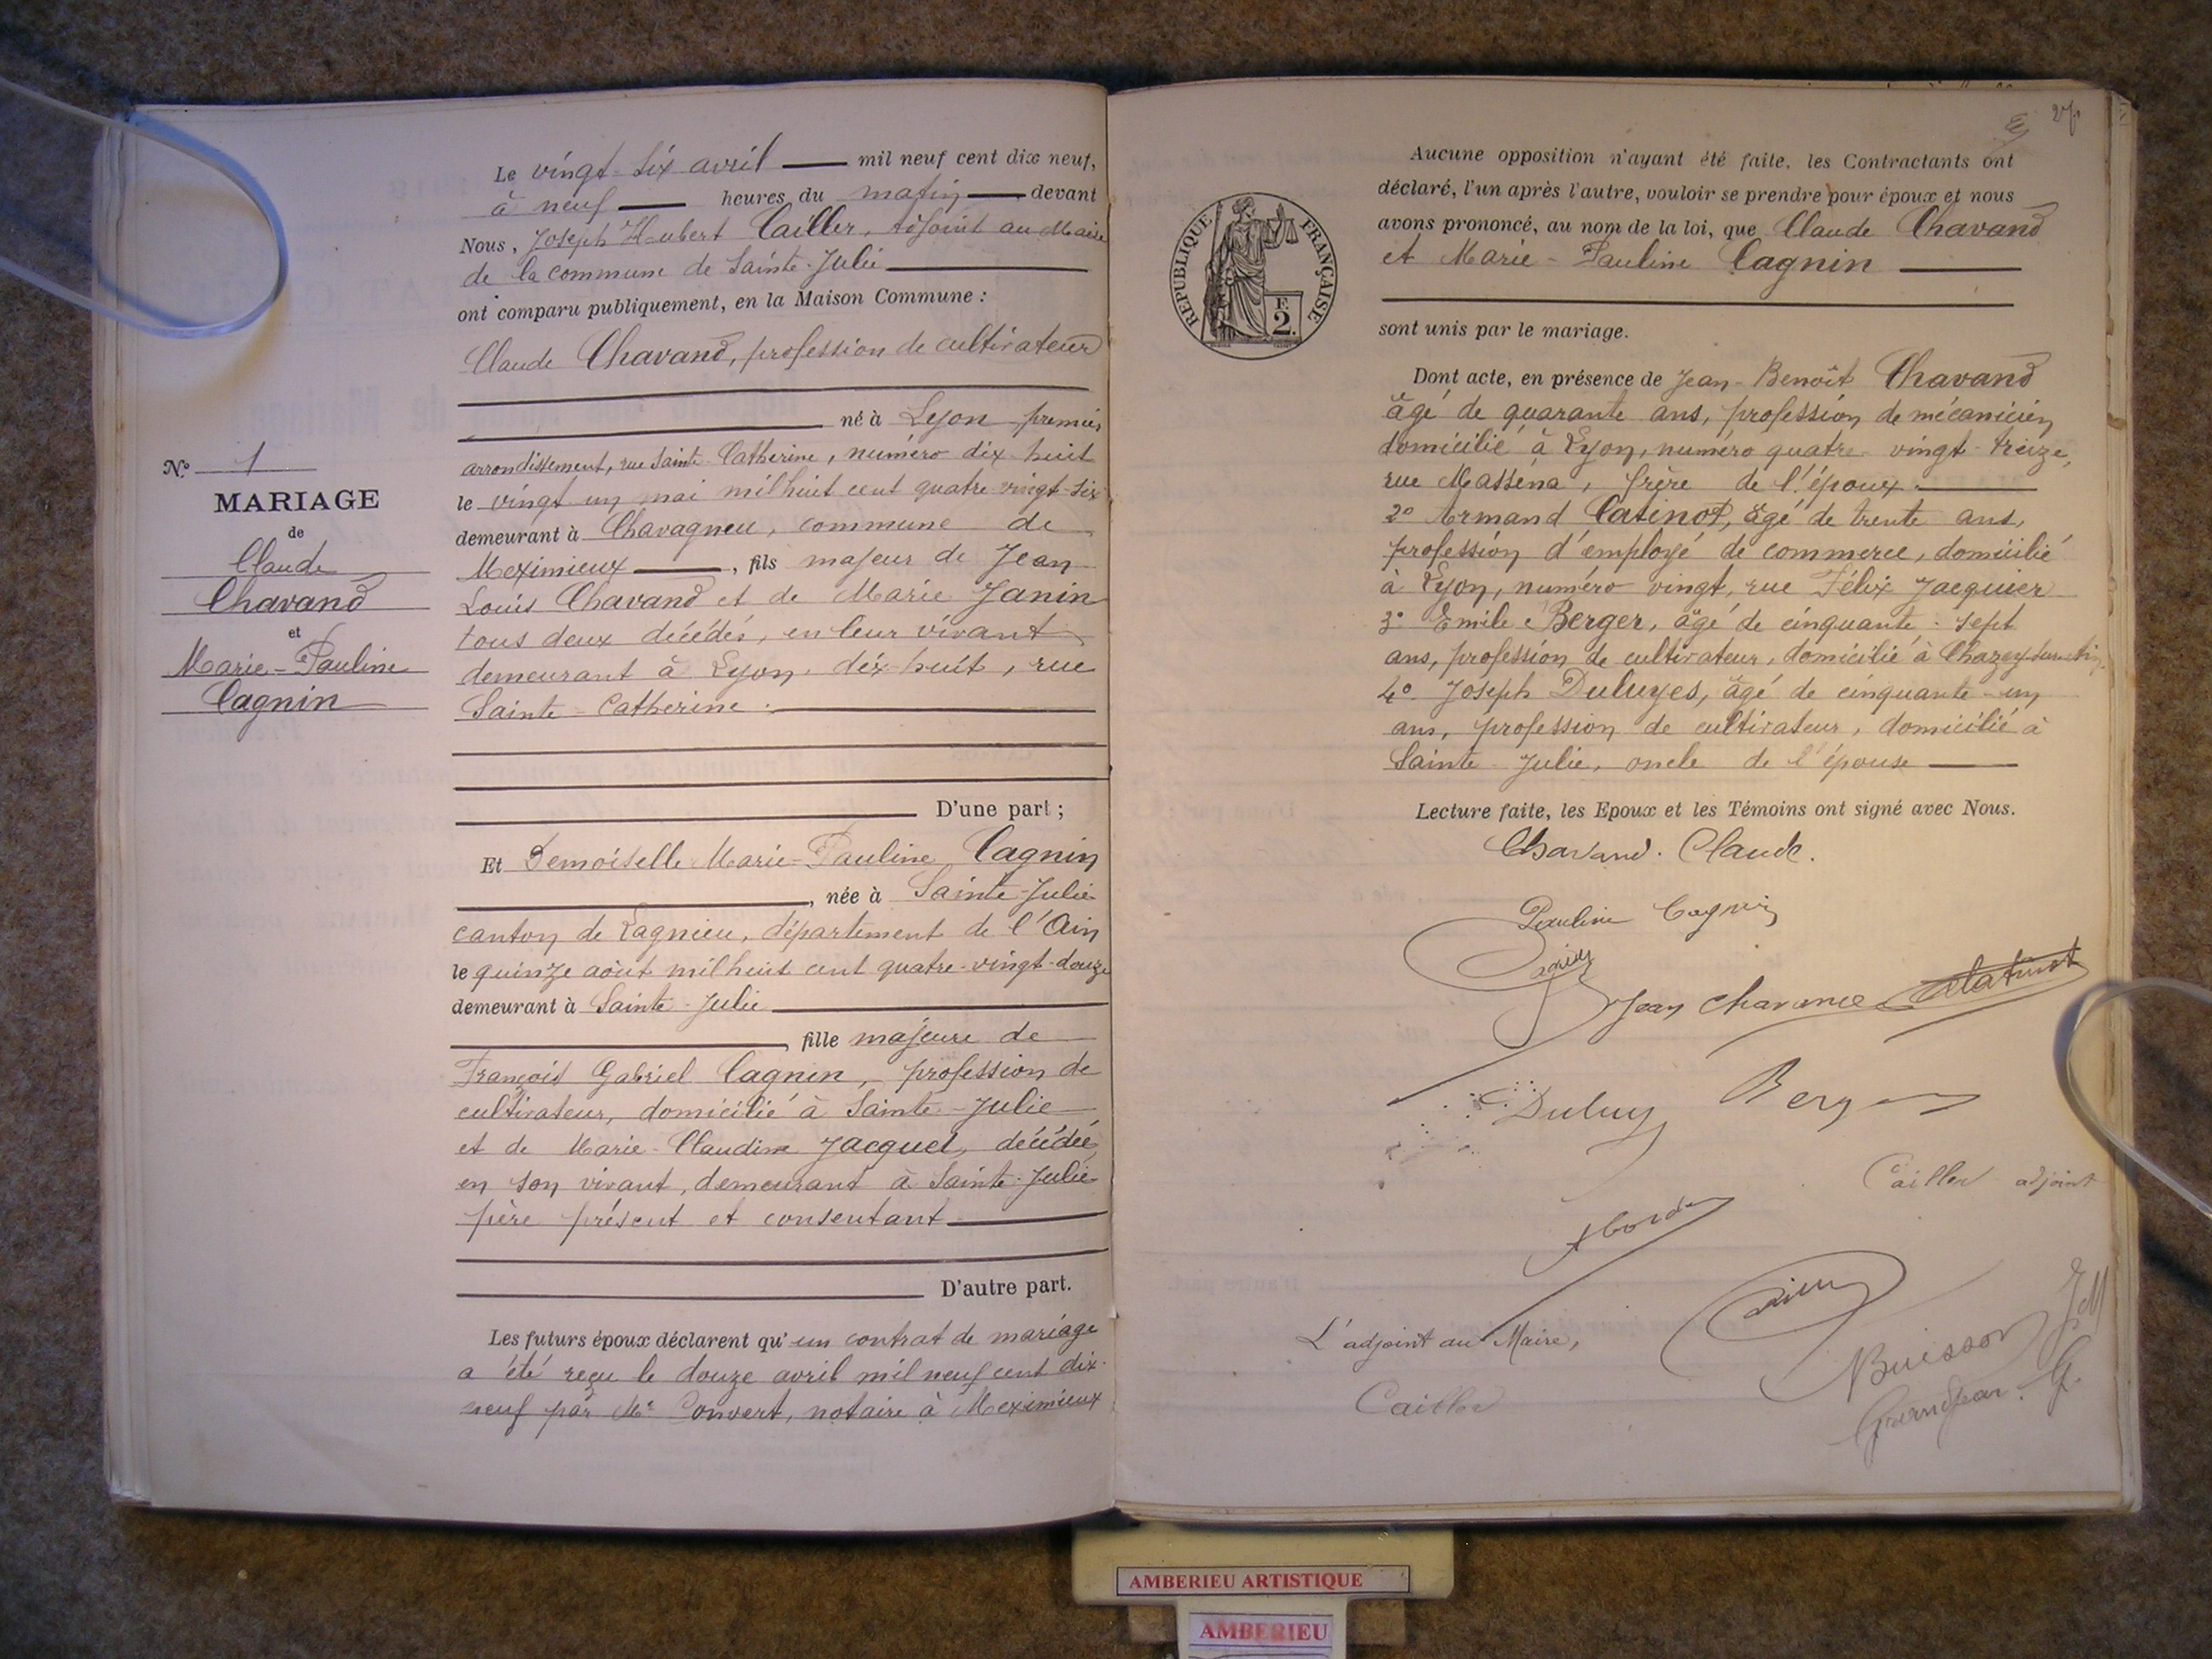 Le vingt-six avril mil neuf cent dix neuf,
à neuf heures du matin devant
Nous, Joseph Hubert Cailler, adjoint au Maire
de la commune de Sainte-Julie
ont comparu publiquement, en la Maison Commune :
Claude Chavand, profession de cultivateur
né à Lyon premier
arrondissement, rue Sainte Catherine, numéro dix huit
le vingt un mai mil huit cent quatre vingt-six
demeurant à Chavagneu, commune de
Meximieux, fils majeur de Jean
Louis Chavand et de Marie Janin
tous deux décédés, en leur vivant
demeurant à Lyon, dix-huit, rue
Sainte-Catherine.
D'une part ;
Et Demoiselle Marie-Pauline Cagnin
, née à Sainte-Julie
canton de Lagnieu, département de l'Ain
le quinze août mil huit cent quatre-vingt-douze
demeurant à Sainte-Julie
, fille majeure de
François Gabriel Cagnin, profession de
cultivateur, domicilié à Sainte-Julie
et de Marie-Claudine Jacquet, décédée,
en son vivant, demeurant à Sainte-Julie
père présent et consentant
D'autre part.
Les futurs époux déclarent qu'un contrat de mariage
a été reçu le douze avril mil neuf cent dix-
neuf par Me Convert, notaire à Meximieux
No 1
MARIAGE
de
Claude
Chavand
et
Marie-Pauline
Cagnin
27
Aucune opposition n'ayant été faite, les Contractants ont
déclaré, l'un après l'autre, vouloir se prendre pour époux et nous
avons prononcé, au nom de la loi, que Claude Chavand
et Marie-Pauline Cagnin
sont unis par le mariage.
RÉPUBLIQUE FRANÇAISE
F.
2.
Dont acte, en présence de Jean-Benoît Chavand
âgé de quarante ans, profession de mécanicien
domicilié à Lyon, numéro quatre-vingt-treize,
rue Masséna, frère de l'époux.
2o Armand Catinot, âgé de trente ans,
profession d'employé de commerce, domicilié
à Lyon, numéro vingt, rue Félix Jacquier
3o Emile Berger, âgé de cinquante-sept
ans, profession de cultivateur, domicilié à Chazey-sur-Ain,
4o Joseph Duluyes, âgé de cinquante-un
ans, profession de cultivateur, domicilié à
Sainte-Julie, oncle de l'épouse
Lecture faite, les Epoux et les Témoins ont signé avec Nous.
Chavand. Claude.
Pauline Cagnin
Cagnin
Jean Chavand Catinot
Duluy Berger
Cailler adjoint
L'adjoint au Maire,
Cailler
Buisson JM
Grandjean. G.
AMBERIEU ARTISTIQUE
AMBERIEU